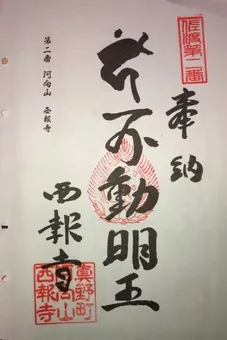 佐渡第二番
奉納
不動明王
第二番 河向山 西報寺
西報寺
真野町
河向山
西報寺